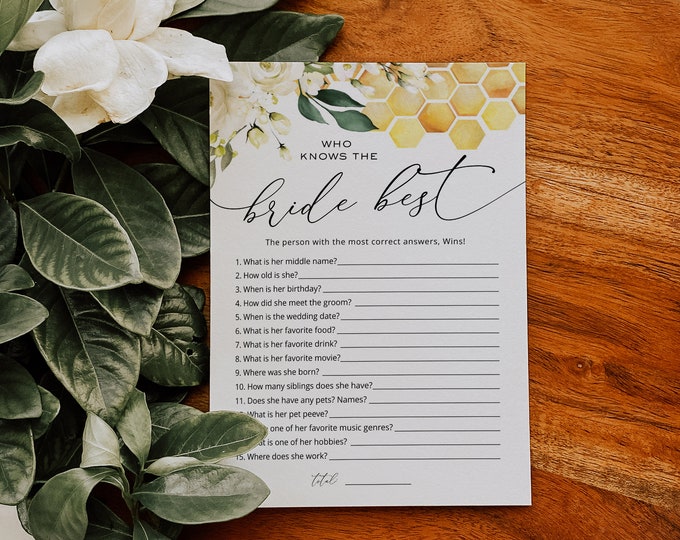 WHO
KNOWS THE
bride best
The person with the most correct answers, Wins!
1. What is her middle name?
2. How old is she?
3. When is her birthday?
4. How did she meet the groom?
5. When is the wedding date?
6. What is her favorite food?
7. What is her favorite drink?
8. What is her favorite movie?
9. Where was she born?
10. How many siblings does she have?
11. Does she have any pets? Names?
is her pet peeve?
one of her favorite music genres?
is one of her hobbies?
15. Where does she work?
total